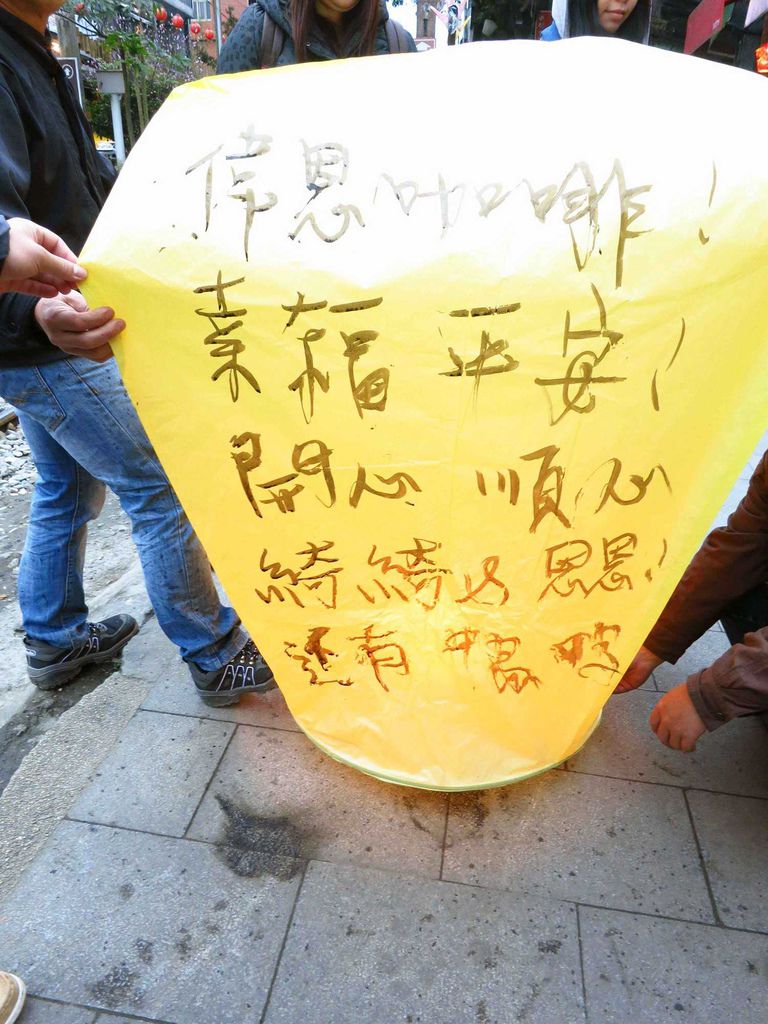 偉恩咖啡!
幸福 平安!
開心 順心
綺綺 & 恩恩!
還有